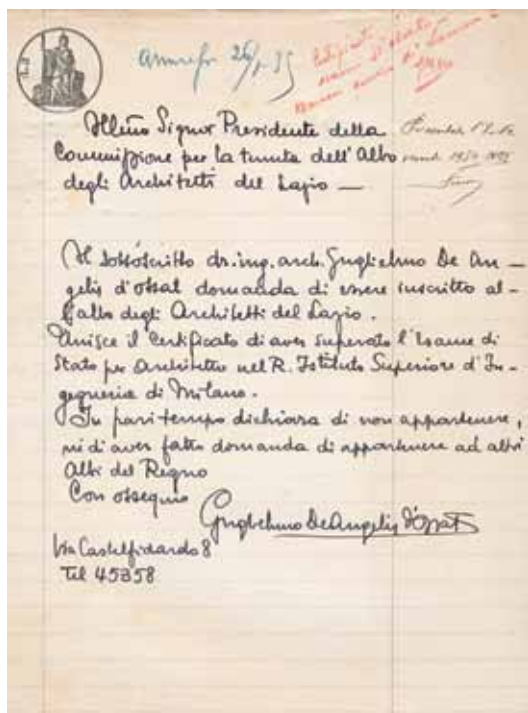 Ill.mo Signor Presidente della
Commissione per la tenuta dell'Albo
degli Architetti del Lazio —
Il sottoscritto dr. ing. arch. Guglielmo De An-
gelis d'Ossat domanda di essere inscritto al-
l'albo degli Architetti del Lazio.
Unisce il Certificato di aver superato l'Esame di
Stato per Architetto nel R. Istituto Superiore d'In-
gegneria di Milano.
In pari tempo dichiara di non appartenere,
né di aver fatto domanda di appartenere ad altri
Albi del Regno
Con ossequio
Guglielmo De Angelis d'Ossat
Via Castelfidardo 8
Tel 45358